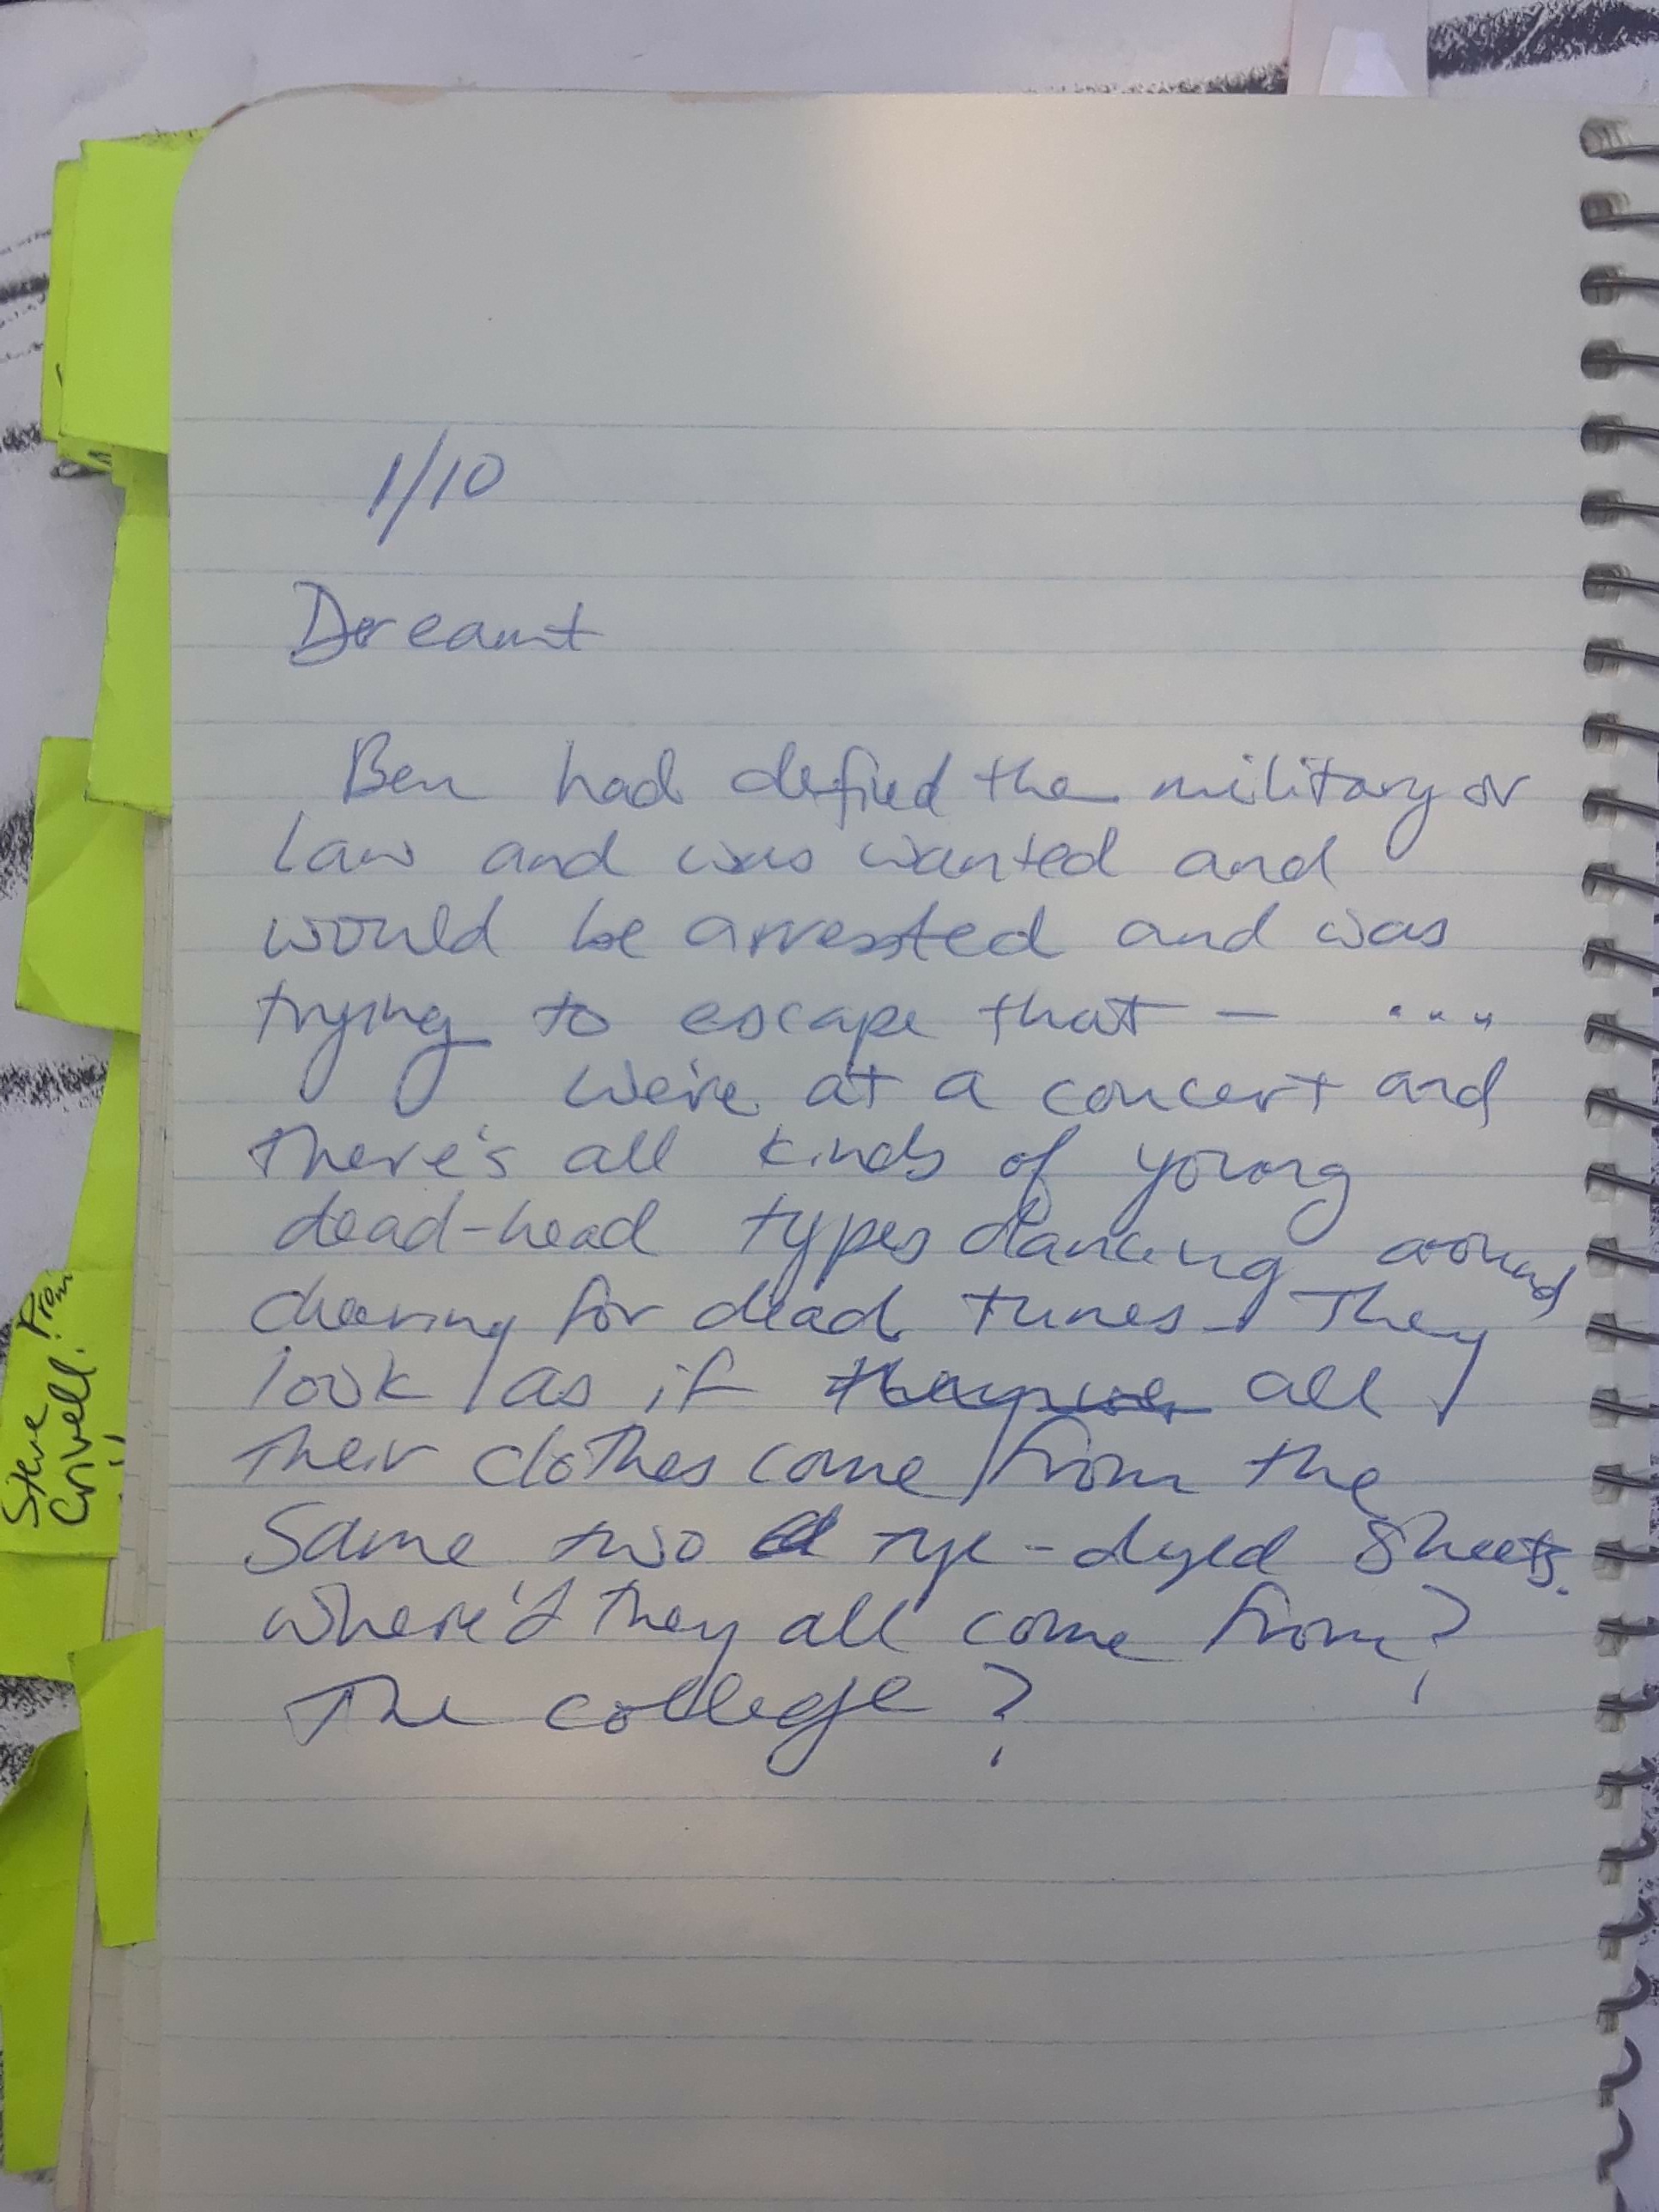 1/10
Dreamt
Ben had defied the military or
law and was wanted and
would be arrested and was
trying to escape that — ....
We're at a concert and
there's all kinds of young
dead-head types dancing around
cheering for dead tunes. They
look as if all
their clothes come from the
same two tye-dyed sheets.
Where'd they all come from?
The college?
Steve
Crivell